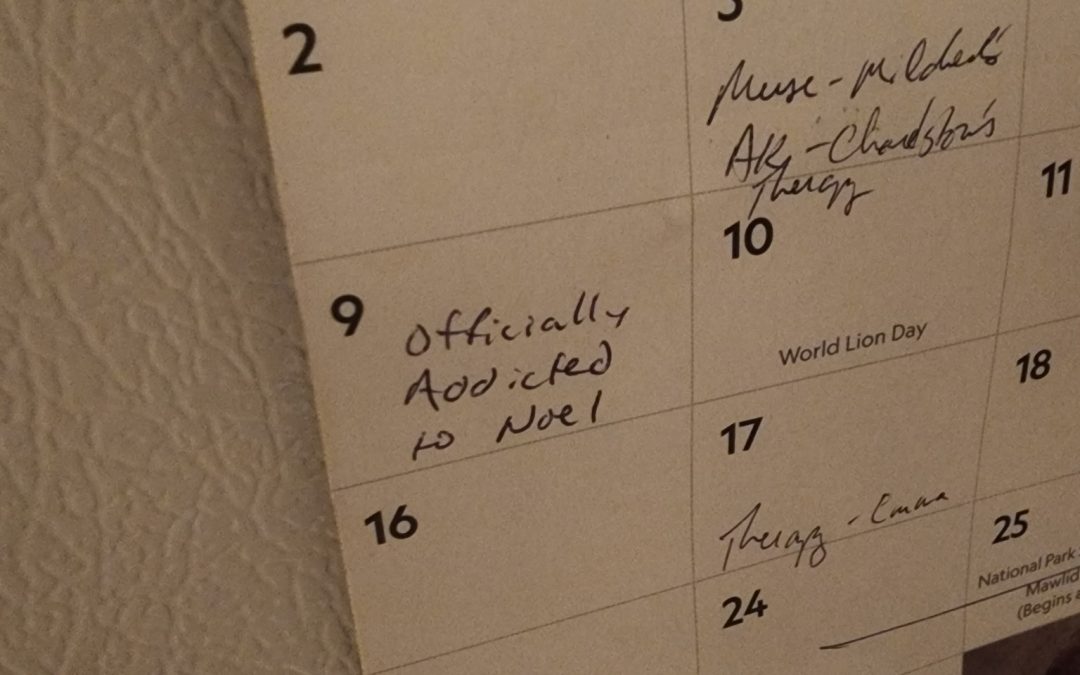 2
3
Muse - Mildred's
AK - Chardstow's
Therapy
9
Officially
Addicted
to Noel
10
World Lion Day
11
16
17
Therapy - Emma
18
24
25
National Park
Mawlid
(Begins a